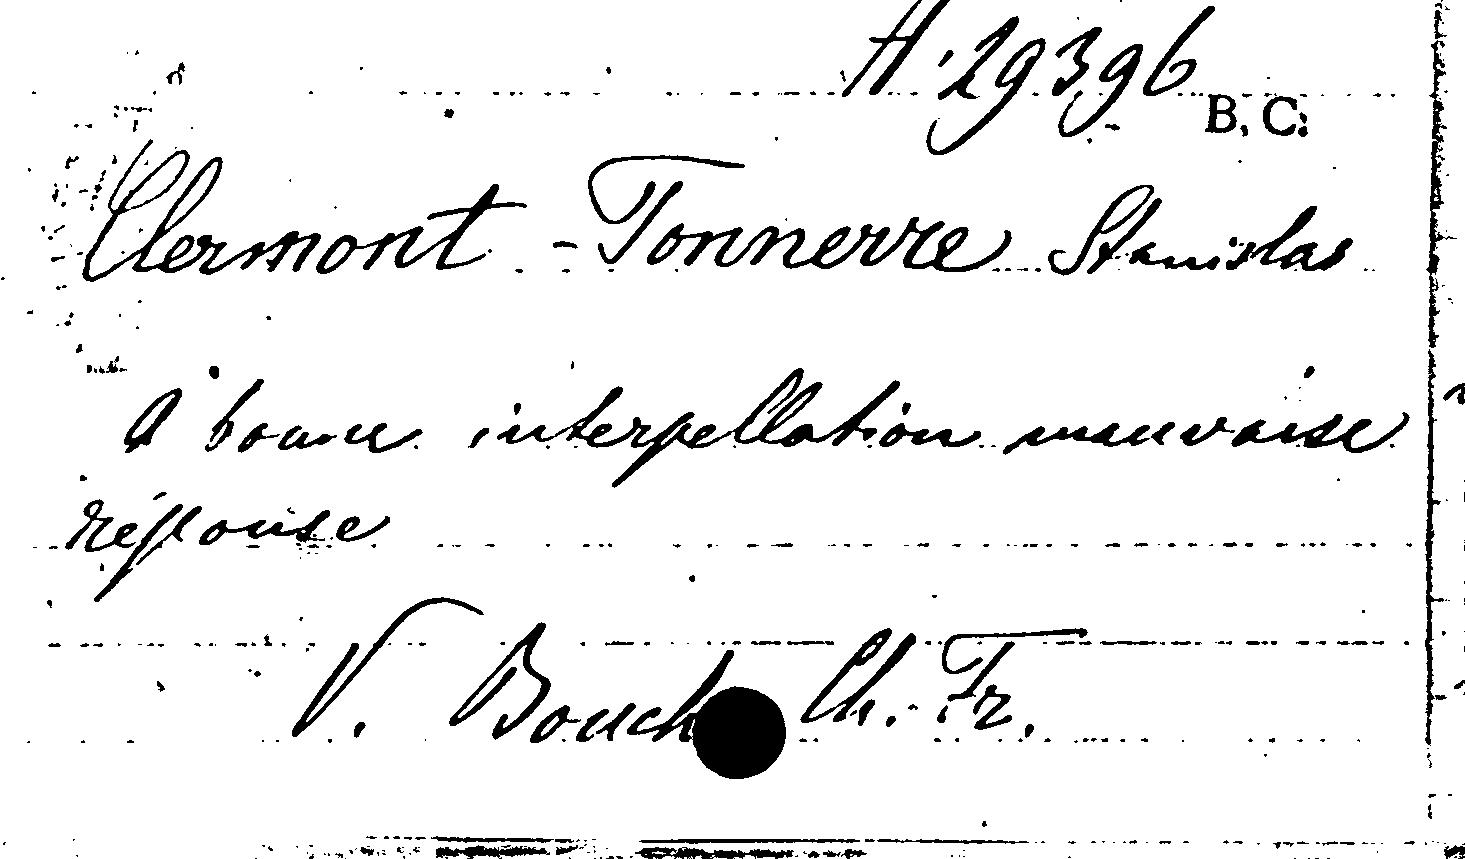 A. 29396
B. C.
Clermont-Tonnerre Stanislas
A bonne interpellation mauvaise
réponse
V. Bouche Ch. Fr.